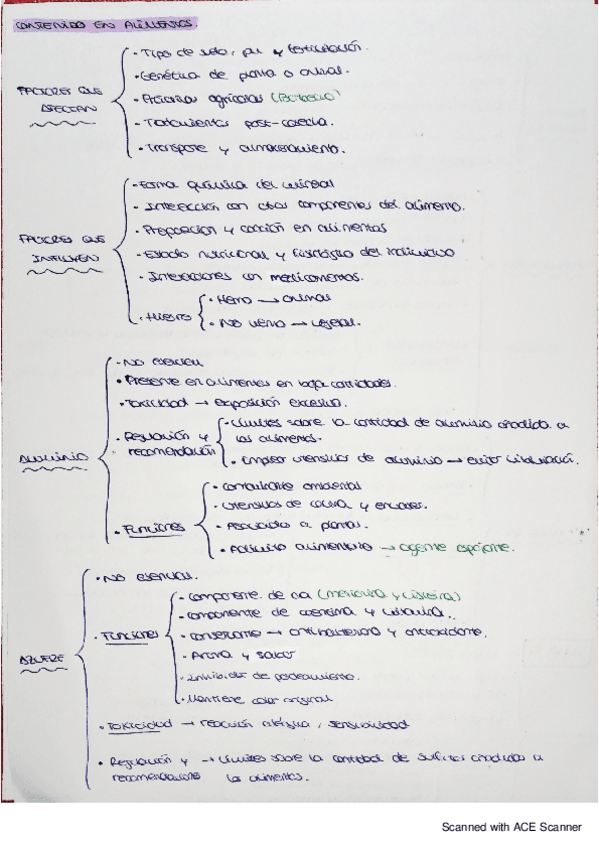 CONTENIDO EN ALIMENTOS
FACTORES QUE AFECTAN
· Tipo de suelo, pH y fertilización.
· Genética de planta o animal.
· Prácticas agrícolas
· Tratamientos post-cosecha.
· Transporte y almacenamiento.
FACTORES QUE INFLUYEN
· Forma química del mineral
· Interacción con otros componentes del alimento.
· Preparación y cocción en alimentos
· Estado nutricional y fisiológico del individuo
· Interacciones con medicamentos.
· Hierro
· Hemo → animal
· No hemo → vegetal.
ALUMINIO
· No esencial
· Presente en alimentos en baja cantidades.
· Toxicidad → exposición excesiva.
· Regulación y recomendación
· Límites sobre la cantidad de aluminio añadida a
los alimentos.
· Emplear utensilios de aluminio → evitar
· Funciones
· Contaminante ambiental
· Utensilios de cocina y envases.
· Asociado a plantas.
· Aditivo alimentario → agente
AZUFRE
· No esencial.
· Funciones
· Componente de aa (metionina y cisteína)
· Componente de
· Conservante → antibacteriano y antioxidante.
· Aroma y sabor
· Inhibidor de pardeamiento.
· Mantiene color original
· Toxicidad → reacción alérgica, sensibilidad
· Regulación y recomendaciones
→ Límites sobre la cantidad de sulfitos añadidos a
los alimentos.
Scanned with ACE Scanner